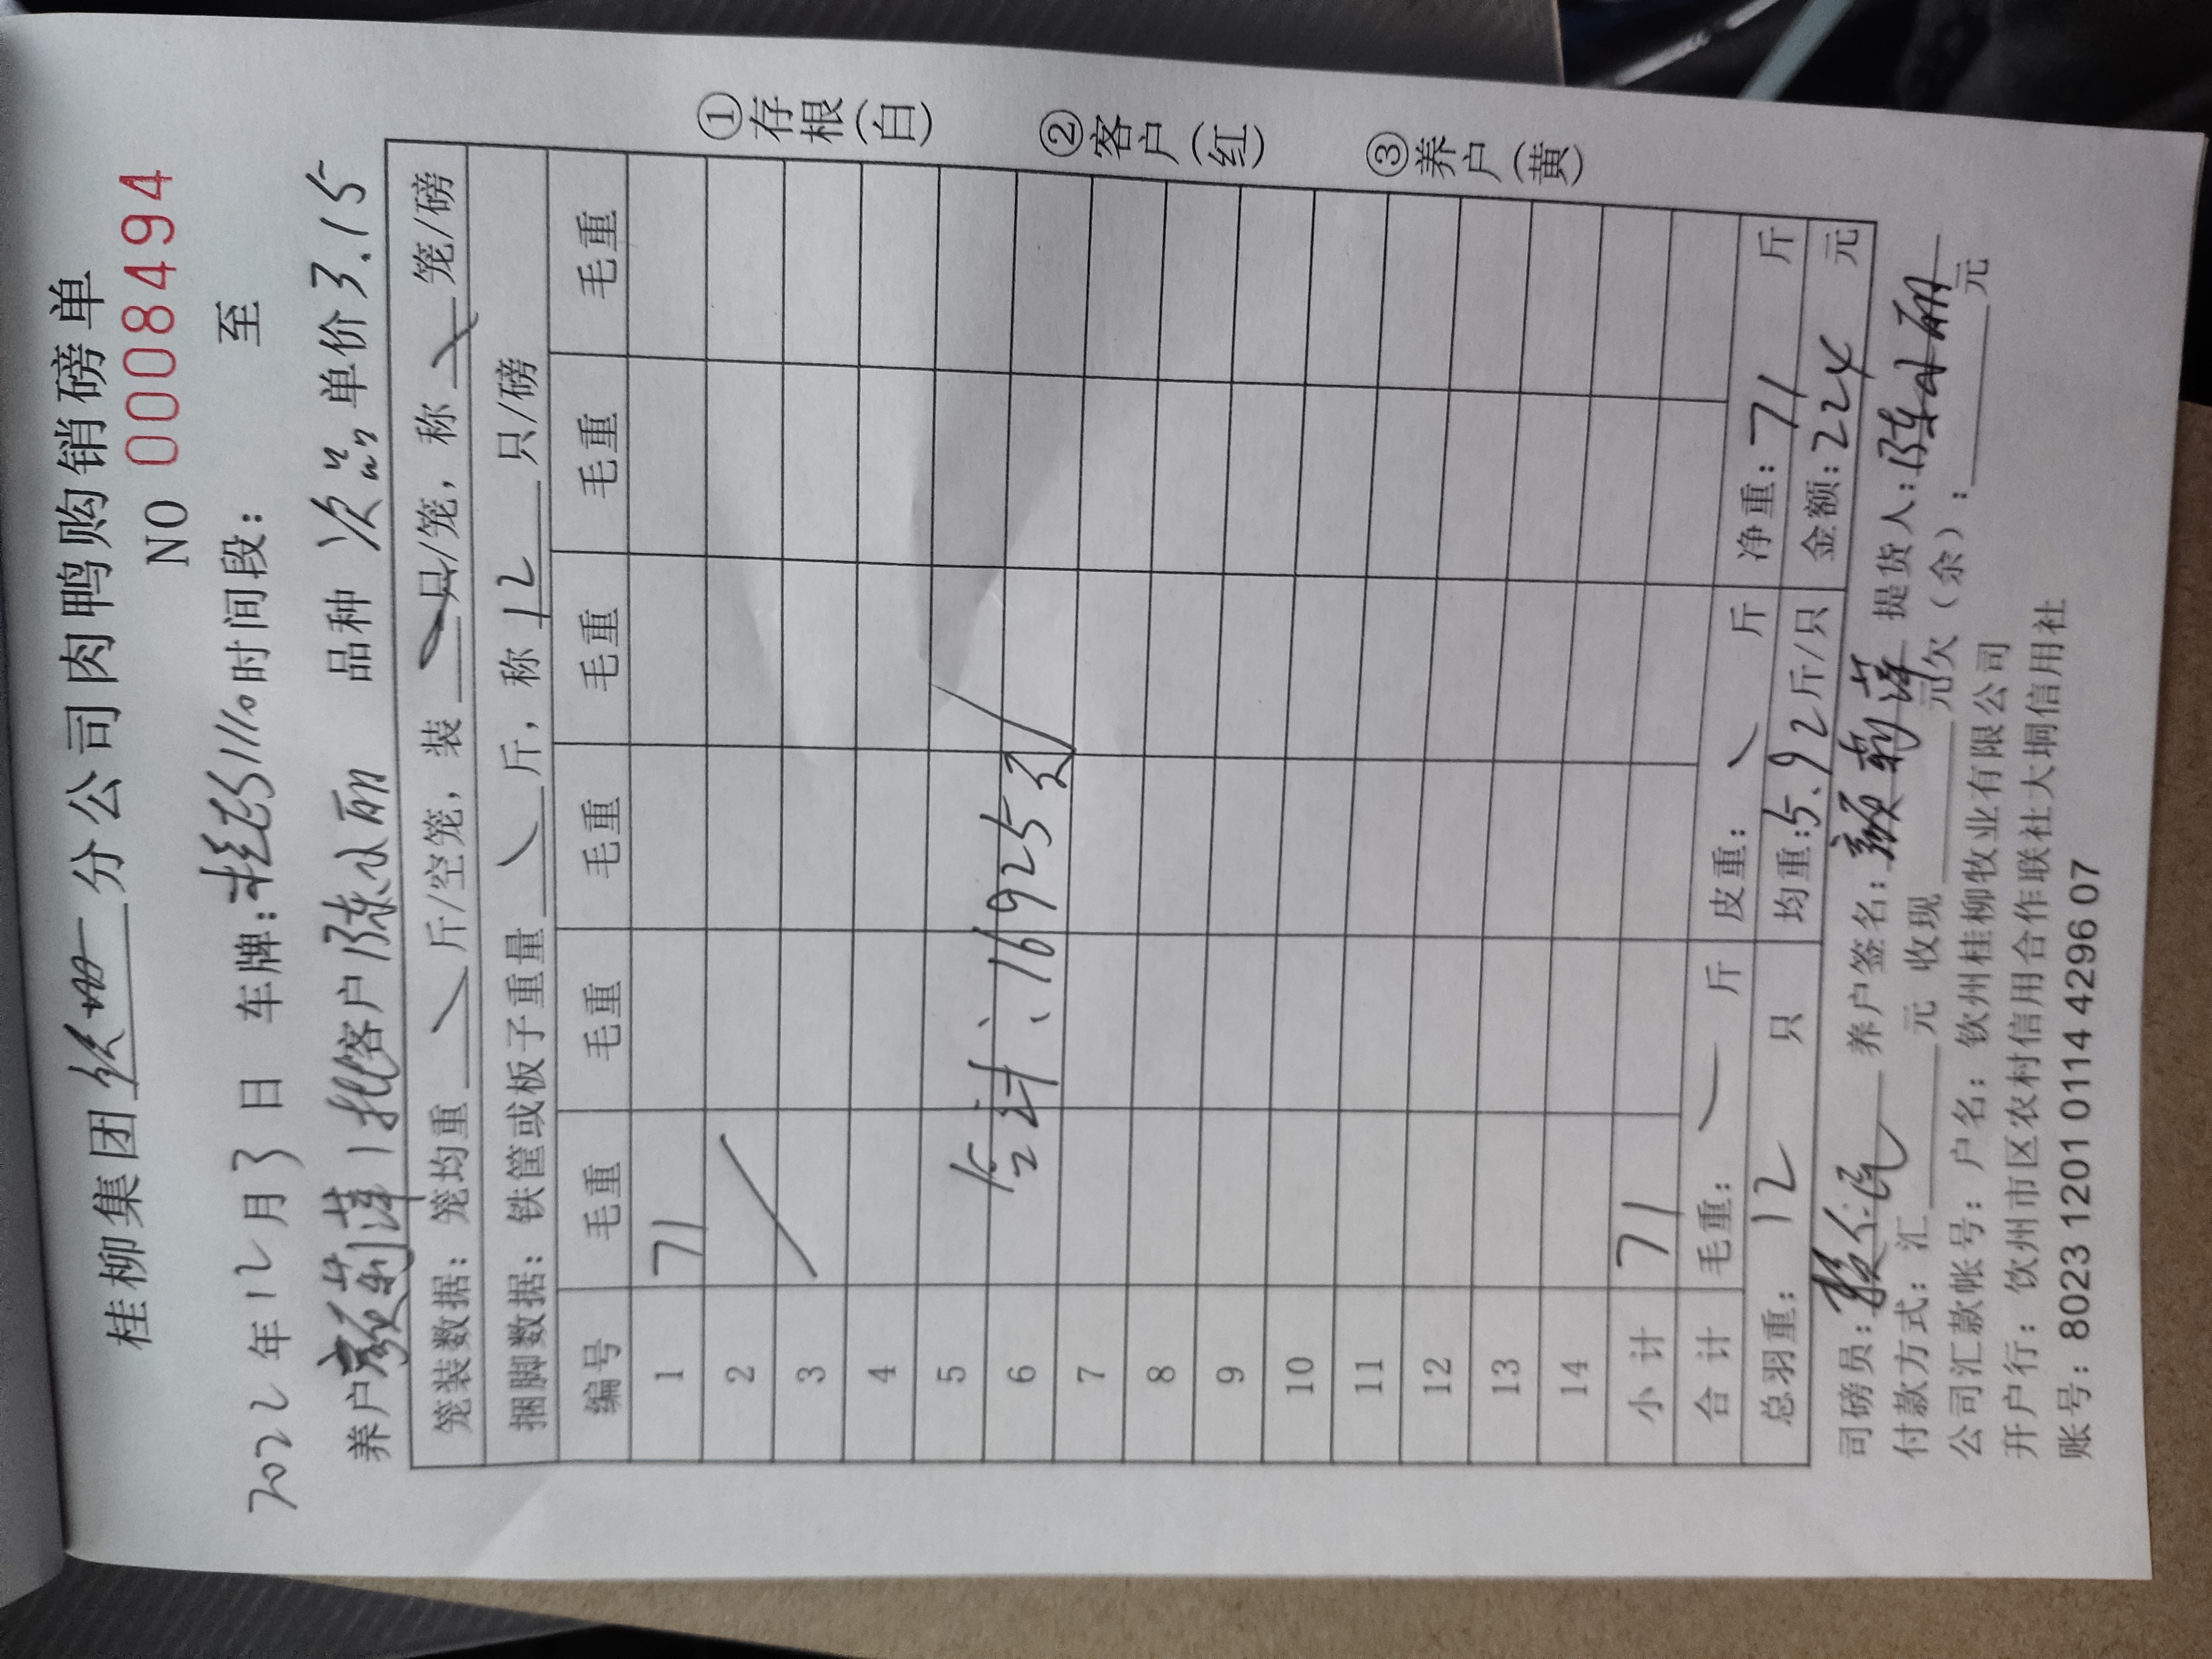 桂柳集团 分公司肉鸭购销磅单
NO 0008494
2022年12月3日 车牌: 时间段: 至
养户 莉萍 1批客户 陈小丽 品种 次品 单价 3.15
笼装数据: 笼均重 斤/空笼, 装 只/笼, 称 笼/磅
捆脚数据: 铁筐或板子重量 斤, 称 12 只/磅
编号 毛重 毛重 毛重 毛重 毛重 毛重
1 71
2
3
4
5
6 合计: 16925元
7
8
9
10
11
12
13
14
小计 71
合计 毛重: 斤 皮重: 斤 净重: 71 斤
总羽重: 12 只 均重: 5.92 斤/只 金额: 224 元
司磅员: 养户签名: 莉萍 提货人: 陈小丽
付款方式: 汇 元 收现 元欠(余): 元
公司汇款帐号: 户名: 钦州桂柳牧业有限公司
开户行: 钦州市区农村信用合作联社大垌信用社
账号: 8023 1201 0114 4296 07
①存根(白)
②客户(红)
③养户(黄)